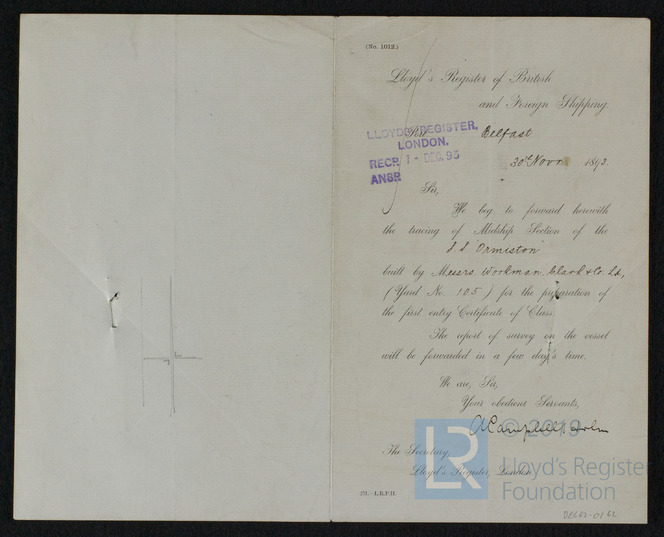 (No. 1012.)
Lloyd's Register of British
and Foreign Shipping.
Port Belfast
LLOYD'S REGISTER,
LONDON.
RECD. 1 - DEC. 93
ANSR
30th Novr 1893.
Sir,
We beg to forward herewith
the tracing of Midship Section of the
S.S. "Ormiston"
built by Messrs. Workman, Clark & Co. Ld,
(Yard No. 105) for the preparation of
the first entry Certificate of Class.
The report of survey on the vessel
will be forwarded in a few day's time.
We are, Sir,
Your obedient Servants,
The Secretary,
Lloyd's Register, London.
© 2019
LR
Lloyd's Register
Foundation